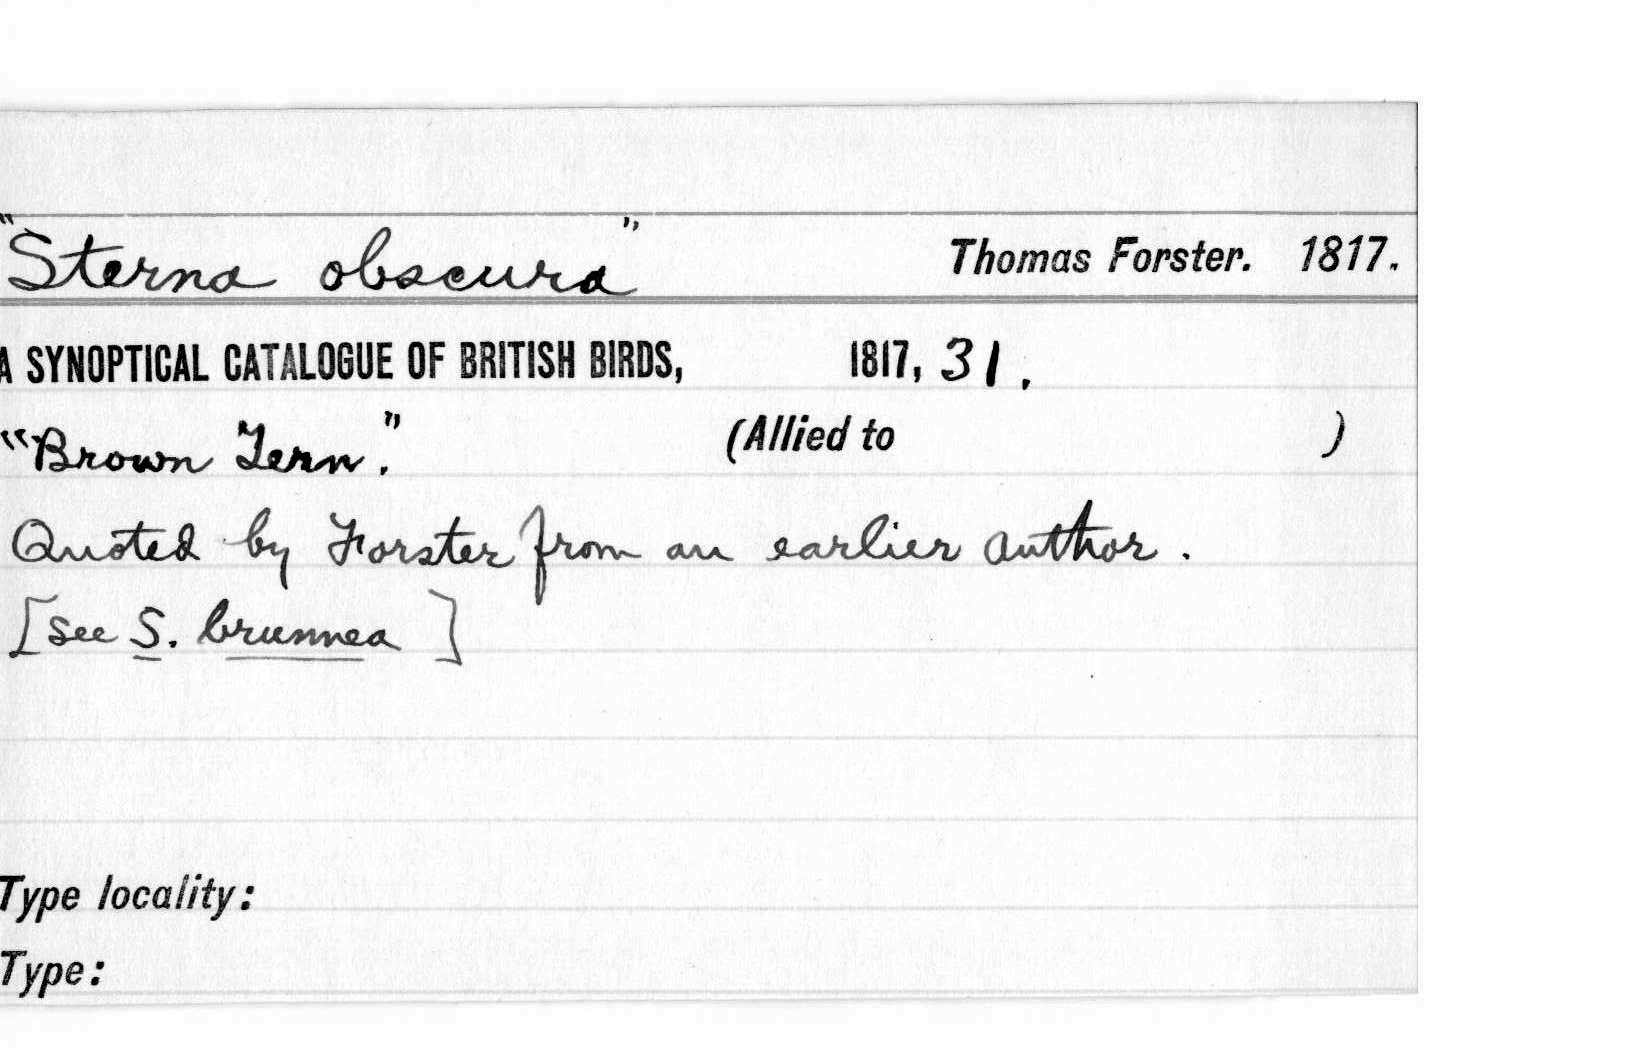 "Sterna obscura" Thomas Forster. 1817.
A SYNOPTICAL CATALOGUE OF BRITISH BIRDS, 1817, 31.
"Brown Tern." (Allied to )
Quoted by Forster from an earlier author.
[see S. brunnea ]
Type locality:
Type: